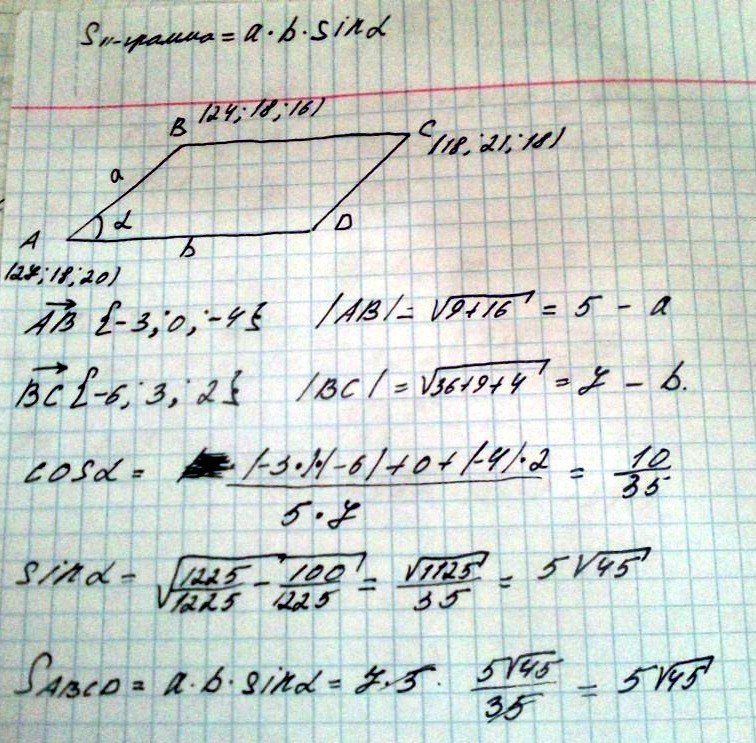 Sп-грамма = a·b·sinα
B (24; 18; 16)
C
(18; 21; 18)
a
α
A
b
D
(27; 18; 20)
AB {-3; 0; -4} |AB| = √9+16 = 5 - a
BC {-6; 3; 2} |BC| = √36+9+4 = 7 - b.
cosα = (-3)·(-6)+0+(-4)·2 / 5·7 = 10/35
sinα = √1225/1225 - 100/225 = √1125/35 = 5√45
SABCD = a·b·sinα = 7·5· 5√45/35 = 5√45